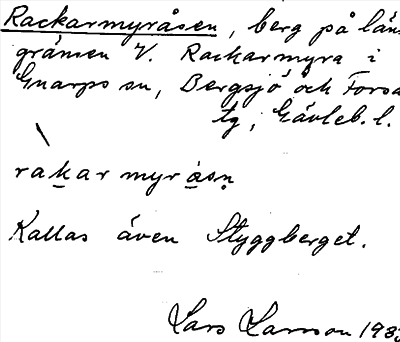 Rackarmyråsen, berg på läns
gränsen V. Rackarmyra i
Gnarps sn, Bergsjö och Forsa
tg, Gävleb. l.
rakarmyråsn
Kallas även Styggberget.
Lars Larsson